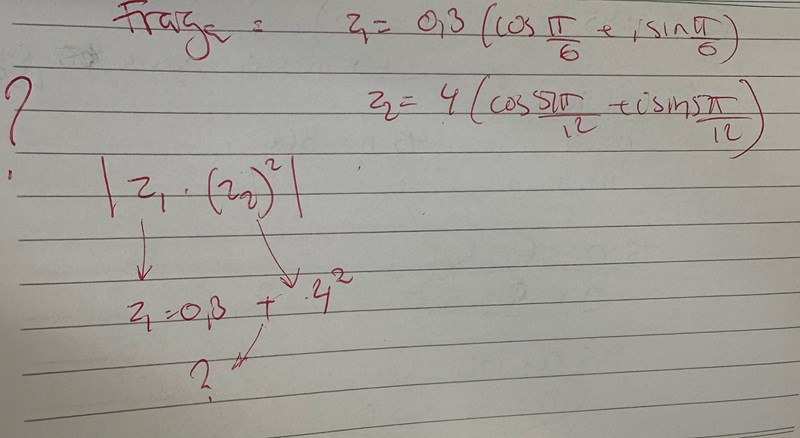 Frage = z₁ = 0,3 (cos π/6 + i sin π/6)
? z₂ = 4 (cos 5π/12 + i sin 5π/12)
| z₁ · (z₂)² |
z₁ = 0,3 + · 4²
?